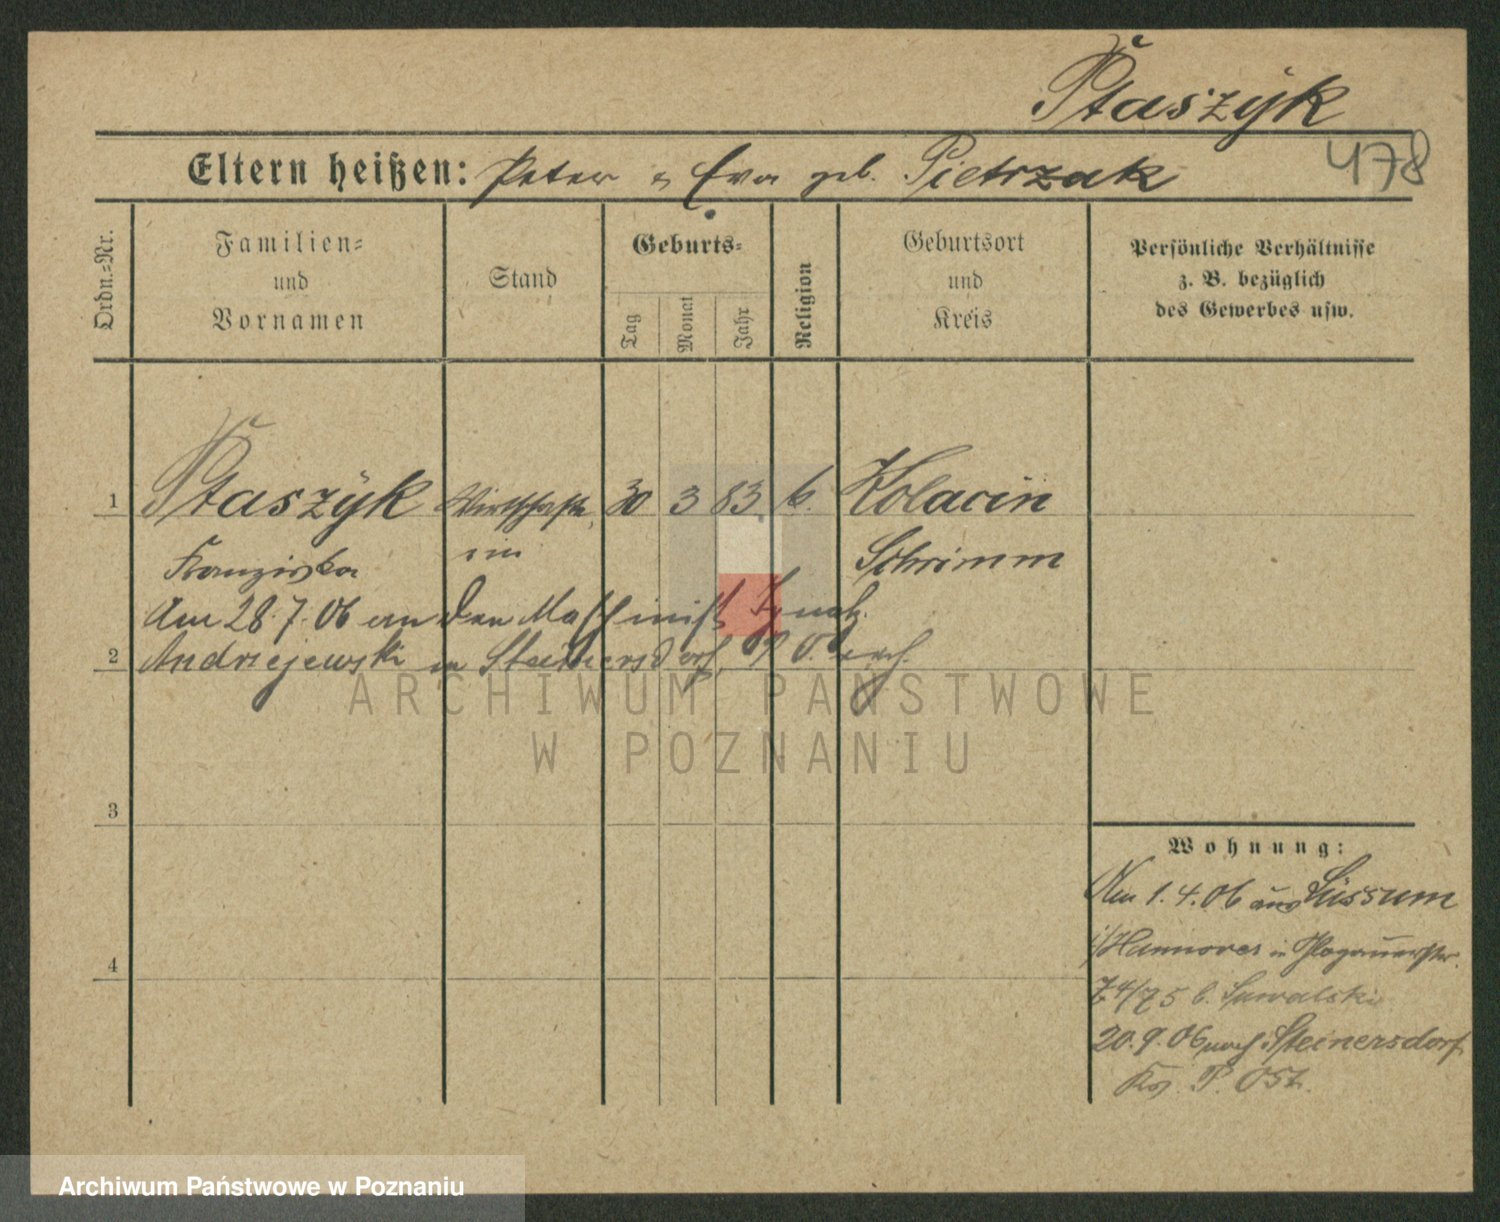 Ptaszÿk
Eltern heißen: Peter u Eva geb. Pietrzak
478
Ordn.=Nr.
Familien=
und
Vornamen
Stand
Geburts=
Tag
Monat
Jahr
Religion
Geburtsort
und
Kreis
Persönliche Verhältnisse
z. B. bezüglich
des Gewerbes usw.
1 Ptaszÿk Wirtschafte 30 3 83 k. Kolacin
Franziska rin Schrimm
Am 28.7.06 an den Maschinist Ignatz
2 Andrzejewski in Steinersdorf, P. O.
3
4
Wohnung:
Am 1.4.06 aus Lüssum
i/Hannover in Glogauerstr.
74/75 b. Suwalski
20.9.06 nach Steinersdorf
Krs. P. Ost.
ARCHIWUM PAŃSTWOWE
W POZNANIU
Archiwum Państwowe w Poznaniu